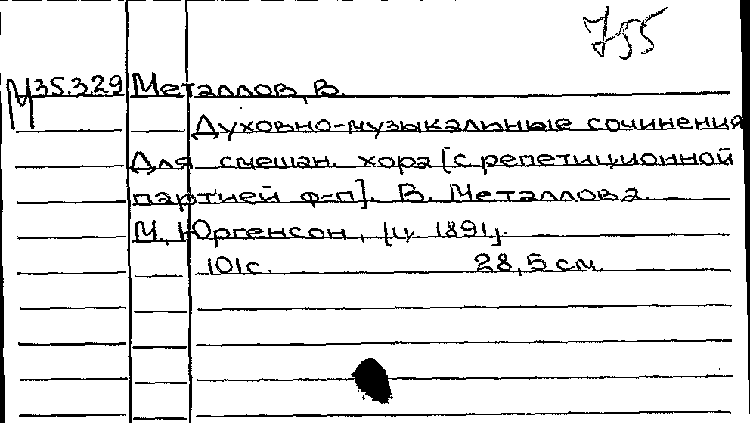 755
М35.3.29 Металлов, В.
Духовно-музыкальные сочинения
Для смешан. хора [с репетиционной
партией ф-п]. В. Металлова.
М. Юргенсон, [ц. 1891].
101с. 28,5 см.